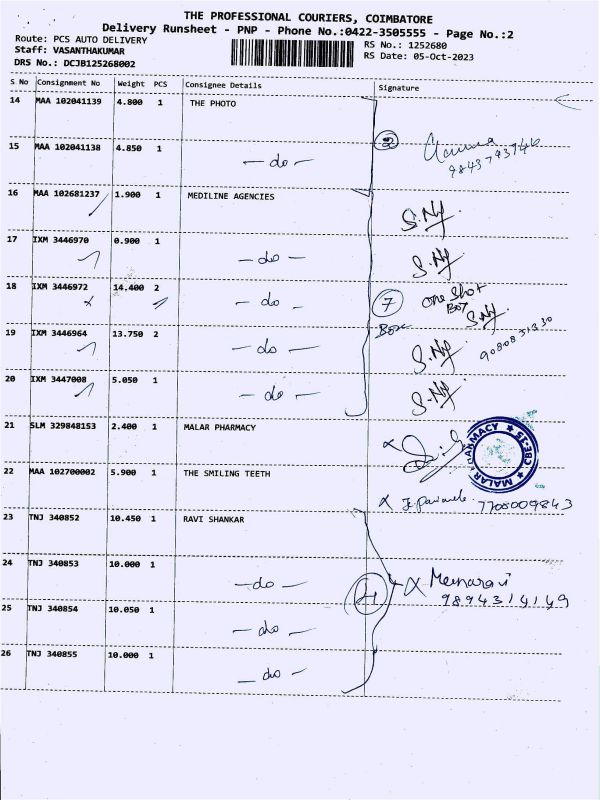 THE PROFESSIONAL COURIERS, COIMBATORE
Delivery Runsheet - PNP - Phone No.:0422-3505555 - Page No.:2
Route: PCS AUTO DELIVERY
RS No.: 1252680
Staff: VASANTHAKUMAR
RS Date: 05-Oct-2023
DRS No.: DCJB125268002
S No Consignment No Weight PCS Consignee Details Signature
14 MAA 102041139 4.800 1 THE PHOTO
15 MAA 102041138 4.850 1 — do —
2
16 MAA 102681237 1.900 1 MEDILINE AGENCIES
17 IXM 3446970 0.900 1 — do —
18 IXM 3446972 14.400 2 — do —
7 Box
One Shot
Box
19 IXM 3446964 13.750 2 — do —
20 IXM 3447008 5.050 1 — do —
21 SLM 329848153 2.400 1 MALAR PHARMACY
MALAR PHARMACY ★ CBE-15 ★
22 MAA 102700002 5.900 1 THE SMILING TEETH
7708009843
23 TNJ 340852 10.450 1 RAVI SHANKAR
24 TNJ 340853 10.000 1 — do —
4
9894314149
25 TNJ 340854 10.050 1 — do —
26 TNJ 340855 10.000 1 — do —